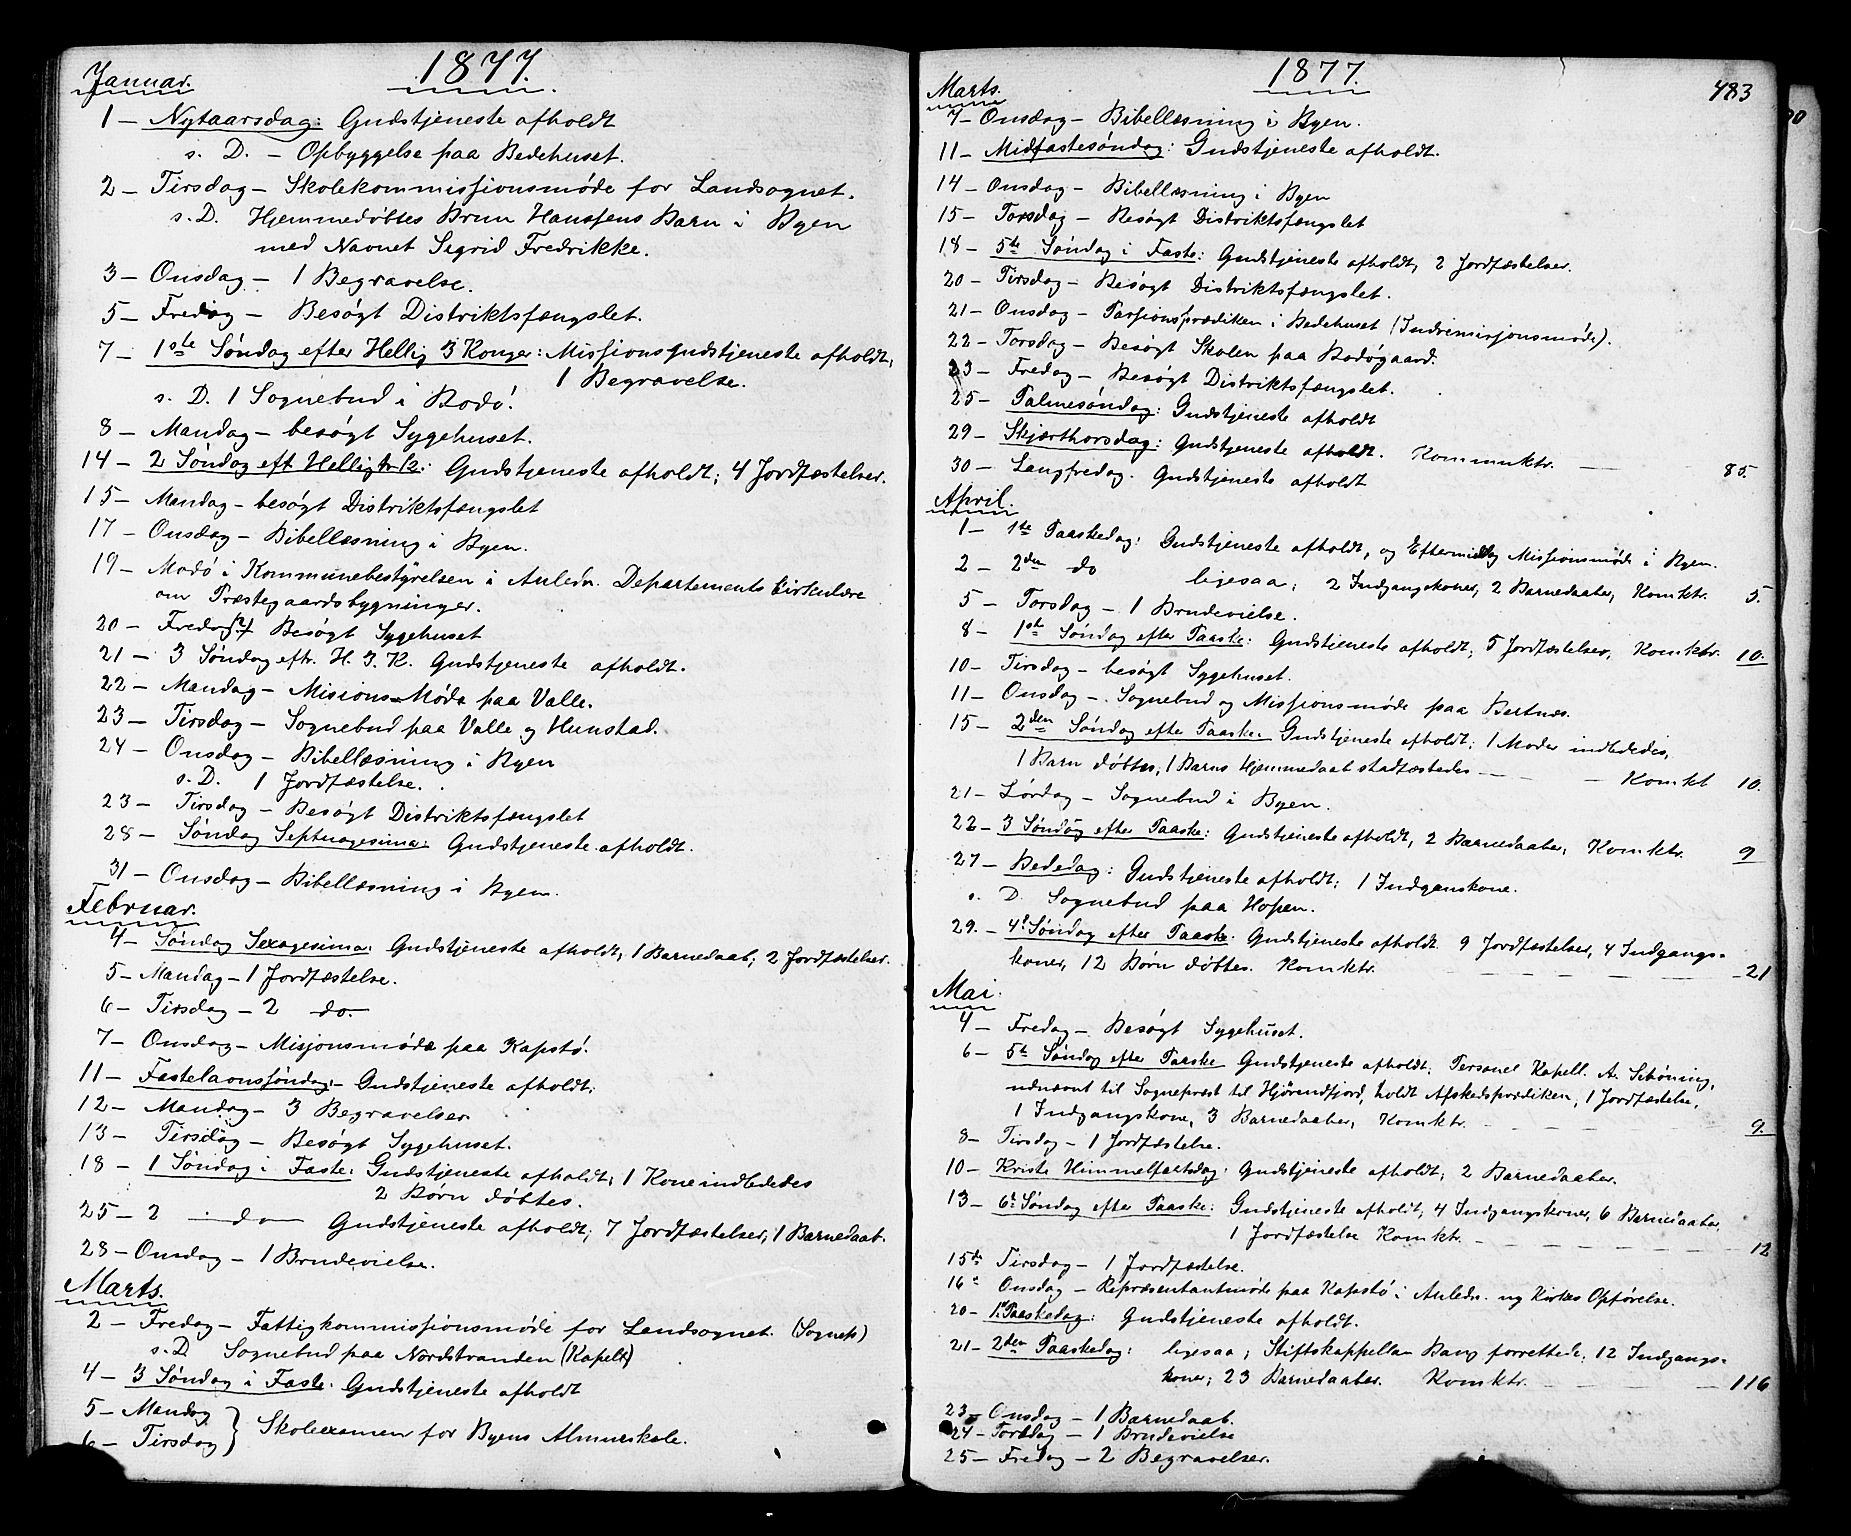 1877.
Januar.
1 — Nytaarsdag: Gudstjeneste afholdt
s. D. — Opbyggelse paa Bedehuset.
2 — Tirsdag — Skolekommissionsmøde for Landsognet.
s. D. Hjemmedøbtes Brun Hanssens Barn i Byen
med Navnet Sigrid Fredrikke.
3 — Onsdag — 1 Begravelse.
5 — Fredag — Besøgt Distriktsfængslet.
7 — 1ste Søndag efter Hellig 3 Konger: Missionsgudstjeneste afholdt;
1 Begravelse.
s. D. 1 Sognebud i Bodø.
8 — Mandag — besøgt Sygehuset.
14 — 2 Søndag eft Hellig tr. k.: Gudstjeneste afholdt; 4 Jordfæstelser.
15 — Mandag — besøgt Distriktsfængslet
17 — Onsdag — Bibellæsning i Byen.
19 — Modø i Kommunebestyrelsen i Anledn. Departements Cirkulære
om Præstegaardsbygninger.
20 — Fredag(?) Besøgt Sygehuset
21 — 3 Søndag eftr. H. 3. K. Gudstjeneste afholdt.
22 — Mandag — Misions-Møde paa Valle.
23 — Tirsdag — Sognebud paa Valle og Hunstad.
24 — Onsdag — Bibellæsning i Byen
s. D. 1 Jordfæstelse.
23 — Tirsdag — Besøgt Distriktsfængslet
28 — Søndag Septuagesima: Gudstjeneste afholdt.
31 — Onsdag — Bibellæsning i Byen.
Februar.
4 — Søndag Sexagesima: Gudstjeneste afholdt; 1 Barnedaab; 2 Jordfæstelser.
5 — Mandag — 1 Jordfæstelse.
6 — Tirsdag — 2 do.
7 — Onsdag — Misjonsmøde paa Kapstø.
11 — Fastelavnssøndag: — Gudstjeneste afholdt;
12 — Mandag — 3 Begravelser
13 — Tirsdag — Besøgt Sygehuset.
18 — 1 Søndag i Faste: Gudstjeneste afholdt; 1 Kone indlededes
2 Børn døbtes.
25 — 2 — do — Gudstjeneste afholdt; 7 Jordfæstelser; 1 Barnedaab.
28 — Onsdag — 1 Brudevielse.
Marts.
2 — Fredag — Fattigkommissionsmøde for Landsognet. (Sognepr)
s. D Sognebud paa Nordstranden (Kapell)
4 — 3 Søndag i Faste. Gudstjeneste afholdt
5 — Mandag } Skoleexamen for Byens Almueskole.
6 — Tirsdag
1877.
483
Marts.
7 — Onsdag — Bibellæsning i Byen.
11 — Midfastesøndag: Gudstjeneste afholdt.
14 — Onsdag — Bibellæsning i Byen
15 — Torsdag — Besøgt Distriktsfængslet
18 — 5te Søndag i Faste: Gudstjeneste afholdt, 2 Jordfæstelser.
20 — Tirsdag — Besøgt Distriktsfængslet.
21 — Onsdag — Passionsprædiken i Bedehuset (Indremissjonsmøde).
22 — Torsdag — Besøgt Skolen paa Bodøgaard.
23 — Fredag — Besøgt Distriktsfængslet.
25 — Palmesøndag: Gudstjeneste afholdt
29 — Skjærthorsdag: Gudstjeneste afholdt. Kommuktr. — 85.
30 — Langfredag. Gudstjeneste afholdt
April.
1 — 1ste Paaskedag: Gudstjeneste afholdt, og Eftermiddag Missionsmøde i Byen.
2 — 2den do ligesaa; 2 Indgangskoner, 2 Barnedaaber, Komktr. 5.
5 — Torsdag — 1 Brudevielse.
8 — 1ste Søndag efter Paaske: Gudstjeneste afholdt; 5 Jordfæstelser, Komktr. 10.
10 — Tirsdag — besøgt Sygehuset.
11 — Onsdag — Sognebud og Missionsmøde paa Bertnæs.
15 — 2den Søndag efter Paaske. Gudstjeneste afholdt; 1 Moder indlededes,
1 Barn døbtes, 1 Barns Hjemmedaab stadfæstedes — — Komkt 10.
21 — Lørdag — Sognebud i Byen.
22 — 3 Søndag efter Paaske: Gudstjeneste afholdt, 2 Barnedaaber, Komktr. 9
27 — Bededag: Gudstjeneste afholdt; 1 Indganskone.
s. D. Sognebud paa Hopen.
29. — 4d Søndag efter Paaske. Gudstjeneste afholdt 9 Jordfæstelser, 4 Indgangs-
koner, 12 Børn døbtes. Komktr. — 21
Mai.
4 — Fredag — Besøgt Sygehuset.
6 — 5te Søndag efter Paaske Gudstjeneste afholdt; Personel Kapell. A. Schöning,
udnævnt til Sogneprest til Hjörendfjord, holdt Afskedsprædiken, 1 Jordfæstelse,
1 Indgangskone, 3 Barnedaaber, Komktr. — 9.
8 — Tirsdag — 1 Jordfæstelse.
10 — Kristi Himmelfartsdag: Gudstjeneste afholdt; 2 Barnedaaber.
13 — 6te Søndag efter Paaske: Gudstjeneste afholdt, 4 Indgangskoner, 6 Barnedaaber,
1 Jordfæstelse Komktr. — 12
15de Tirsdag — 1 Jordfæstelse.
16e Onsdag — Repræsentantmøde paa Kapstø i Anledn. ny Kirkes Opførelse.
20 — 1. Paaskedag: Gudstjeneste afholdt.
21 — 2den Paaskedag: ligesaa; Stiftskappellan Bang forrettede; 12 Indgangs-
koner; 23 Barnedaaber. Komktr. — 116
23 — Onsdag — 1 Barnedaab.
24 — Torsdag — 1 Brudevielse
25 — Fredag — 2 Begravelser.